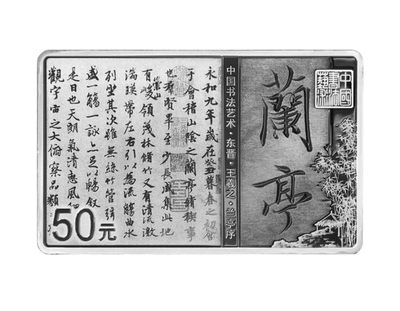 中國書法
蘭亭
中国书法艺术·东晋·王羲之·兰亭序
永和九年歲在癸丑暮春之初會
于會稽山陰之蘭亭脩稧事
也羣賢畢至少長咸集此地
有崇山峻領茂林脩竹又有清流激
湍暎帶左右引以為流觴曲水
列坐其次雖無絲竹管絃
盛一觴一詠亦足以暢叙
是日也天朗氣清惠風
觀宇宙之大俯察品類
50元